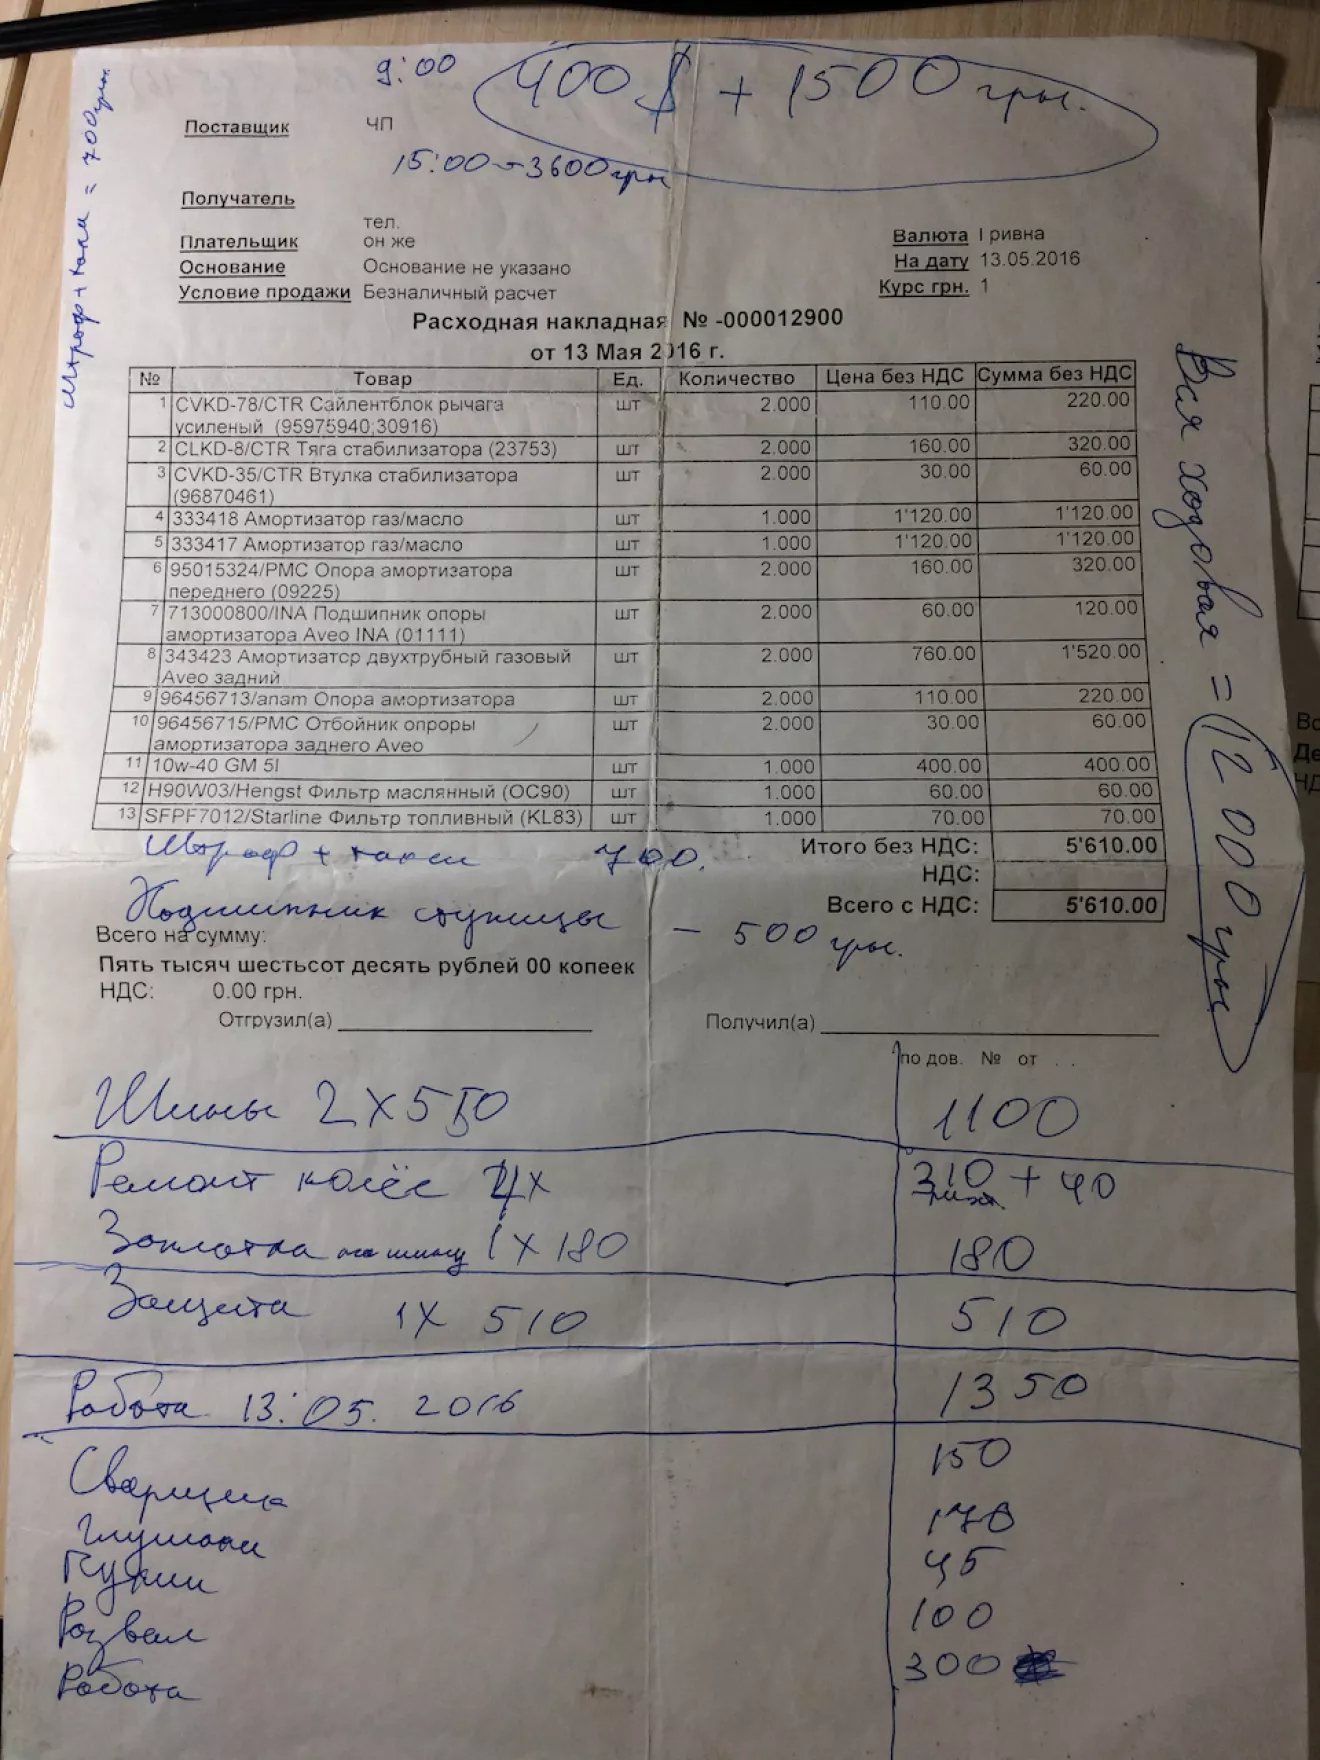 9:00
400$ + 1500 грн.
Поставщик ЧП
15:00 - 3600 грн
Штраф + такси = 700 грн.
Получатель
тел.
Плательщик он же
Валюта Гривна
Основание Основание не указано
На дату 13.05.2016
Условие продажи Безналичный расчет
Курс грн. 1
Расходная накладная № -000012900
от 13 Мая 2016 г.
№ Товар Ед. Количество Цена без НДС Сумма без НДС
1 CVKD-78/CTR Сайлентблок рычага шт 2.000 110.00 220.00
усиленый (95975940;30916)
2 CLKD-8/CTR Тяга стабилизатора (23753) шт 2.000 160.00 320.00
3 CVKD-35/CTR Втулка стабилизатора шт 2.000 30.00 60.00
(96870461)
4 333418 Амортизатор газ/масло шт 1.000 1'120.00 1'120.00
5 333417 Амортизатор газ/масло шт 1.000 1'120.00 1'120.00
6 95015324/PMC Опора амортизатора шт 2.000 160.00 320.00
переднего (09225)
7 713000800/INA Подшипник опоры шт 2.000 60.00 120.00
амортизатора Aveo INA (01111)
8 343423 Амортизатор двухтрубный газовый шт 2.000 760.00 1'520.00
Aveo задний
9 96456713/anam Опора амортизатора шт 2.000 110.00 220.00
10 96456715/PMC Отбойник опроры шт 2.000 30.00 60.00
амортизатора заднего Aveo
11 10w-40 GM 5l шт 1.000 400.00 400.00
12 H90W03/Hengst Фильтр маслянный (OC90) шт 1.000 60.00 60.00
13 SFPF7012/Starline Фильтр топливный (KL83) шт 1.000 70.00 70.00
Итого без НДС: 5'610.00
Штраф + такси 700.
НДС:
Всего с НДС: 5'610.00
Подшипник ступицы - 500 грн.
Всего на сумму:
Пять тысяч шестьсот десять рублей 00 копеек
НДС: 0.00 грн.
Отгрузил(а) Получил(а)
по дов. № от . .
Вся ходовая = 12 000 грн
Шины 2 х 550 1100
Ремонт колёс 4х 310 + 40
Заплатка на шину 1 х 180 180
Защита 1х 510 510
Работа 13.05.2016 1350
Сварщик 150
Глушаки 170
45
Развал 100
Работа 300